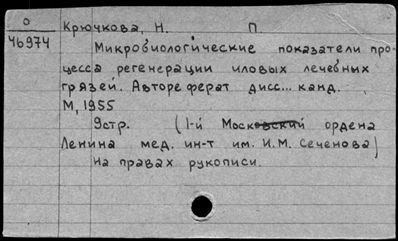 О Крючкова, Н. П.
46974
Микробиологические показатели про-
цесса регенерации иловых лечебных
грязей. Автореферат дисс... канд.
М, 1955
9стр. (1-й Московский ордена
Ленина мед. ин-т им. И.М. Сеченова)
На правах рукописи.